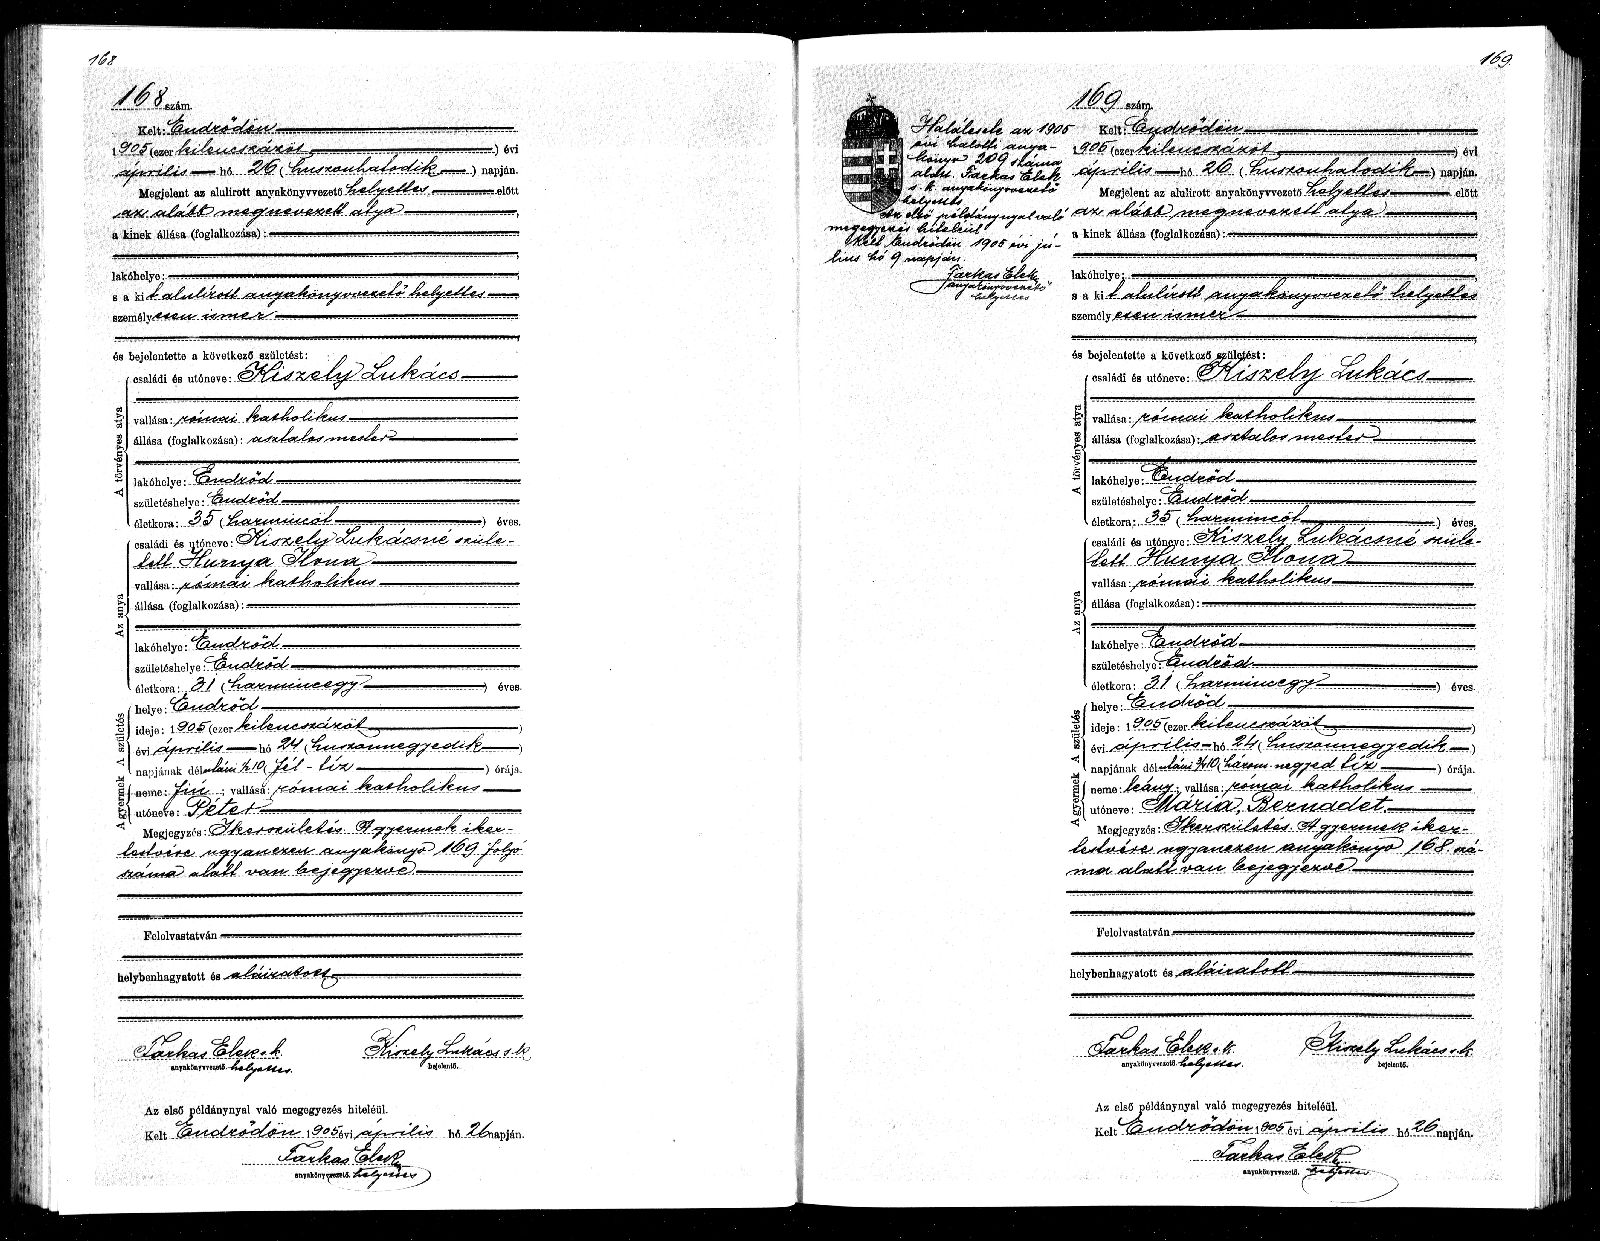 168
168 szám.
Kelt: Endrődön
1905 (ezer kilencszázöt) évi
április hó 26 (huszonhatodik) napján.
Megjelent az alulirott anyakönyvvezető helyettes előtt
az alább megnevezett atya
a kinek állása (foglalkozása):
lakóhelye:
s a kit alulírott anyakönyvvezető helyettes
személyesen ismer
és bejelentette a következő születést:
A törvényes atya
családi és utóneve: Kiszely Lukács
vallása: római katholikus
állása (foglalkozása): asztalosmester
lakóhelye: Endrőd
születéshelye: Endrőd
életkora: 35 (harmincöt) éves.
Az anya
családi és utóneve: Kiszely Lukácsné szüle-
tett Hunya Ilona
vallása: római katholikus
állása (foglalkozása):
lakóhelye: Endrőd
születéshelye: Endrőd
életkora: 31 (harmincegy) éves.
A születés
helye: Endrőd
ideje: 1905 (ezer kilencszázöt)
évi április hó 24 (huszonnegyedik)
napjának délutáni 1/2 10 (fél-tíz) órája.
A gyermek
neme: fiú; vallása: római katholikus
utóneve: Péter
Megjegyzés: Ikerszületés. A gyermek iker-
testvére ugyanezen anyakönyv 169 folyó
száma alatt van bejegyezve
Felolvastatván
helybenhagyatott és aláiratott
Farkas Elek s. k. Kiszely Lukács s. k.
anyakönyvvezető helyettes. bejelentő.
Az első példánynyal való megegyezés hiteléül.
Kelt Endrődön 1905 évi április hó 26 napján.
Farkas Elek
anyakönyvvezető. helyettes
169.
Halálesete az 1905
évi halotti anya-
könyv 209 száma
alatt. Farkas Elek
s. k. anyakönyvvezető
helyettes
Az első példánynyal való
megegyezés hiteléül
Kelt Endrődön 1905 évi jú-
lius hó 9 napján.
Farkas Elek
anyakönyvvezető
helyettes
169 szám.
Kelt: Endrődön
1905 (ezer kilencszázöt) évi
április hó 26 (huszonhatodik) napján.
Megjelent az alulirott anyakönyvvezető helyettes előtt
az alább megnevezett atya
a kinek állása (foglalkozása):
lakóhelye:
s a kit alulírott anyakönyvvezető helyettes
személyesen ismer
és bejelentette a következő születést:
A törvényes atya
családi és utóneve: Kiszely Lukács
vallása: római katholikus
állása (foglalkozása): asztalosmester
lakóhelye: Endrőd
születéshelye: Endrőd
életkora: 35 (harmincöt) éves.
Az anya
családi és utóneve: Kiszely Lukácsné szüle-
tett Hunya Ilona
vallása: római katholikus
állása (foglalkozása):
lakóhelye: Endrőd
születéshelye: Endrőd
életkora: 31 (harmincegy) éves.
A születés
helye: Endrőd
ideje: 1905 (ezer kilencszázöt)
évi április hó 24 (huszonnegyedik)
napjának délutáni 3/4 10 (három-negyed tíz) órája.
A gyermek
neme: leány; vallása: római katholikus
utóneve: Mária, Bernadet
Megjegyzés: Ikerszületés. A gyermek iker-
testvére ugyanezen anyakönyv 168. szá-
ma alatt van bejegyezve
Felolvastatván
helybenhagyatott és aláiratott
Farkas Elek s. k. Kiszely Lukács s. k.
anyakönyvvezető helyettes. bejelentő.
Az első példánynyal való megegyezés hiteléül.
Kelt Endrődön 1905 évi április hó 26 napján.
Farkas Elek
anyakönyvvezető. helyettes